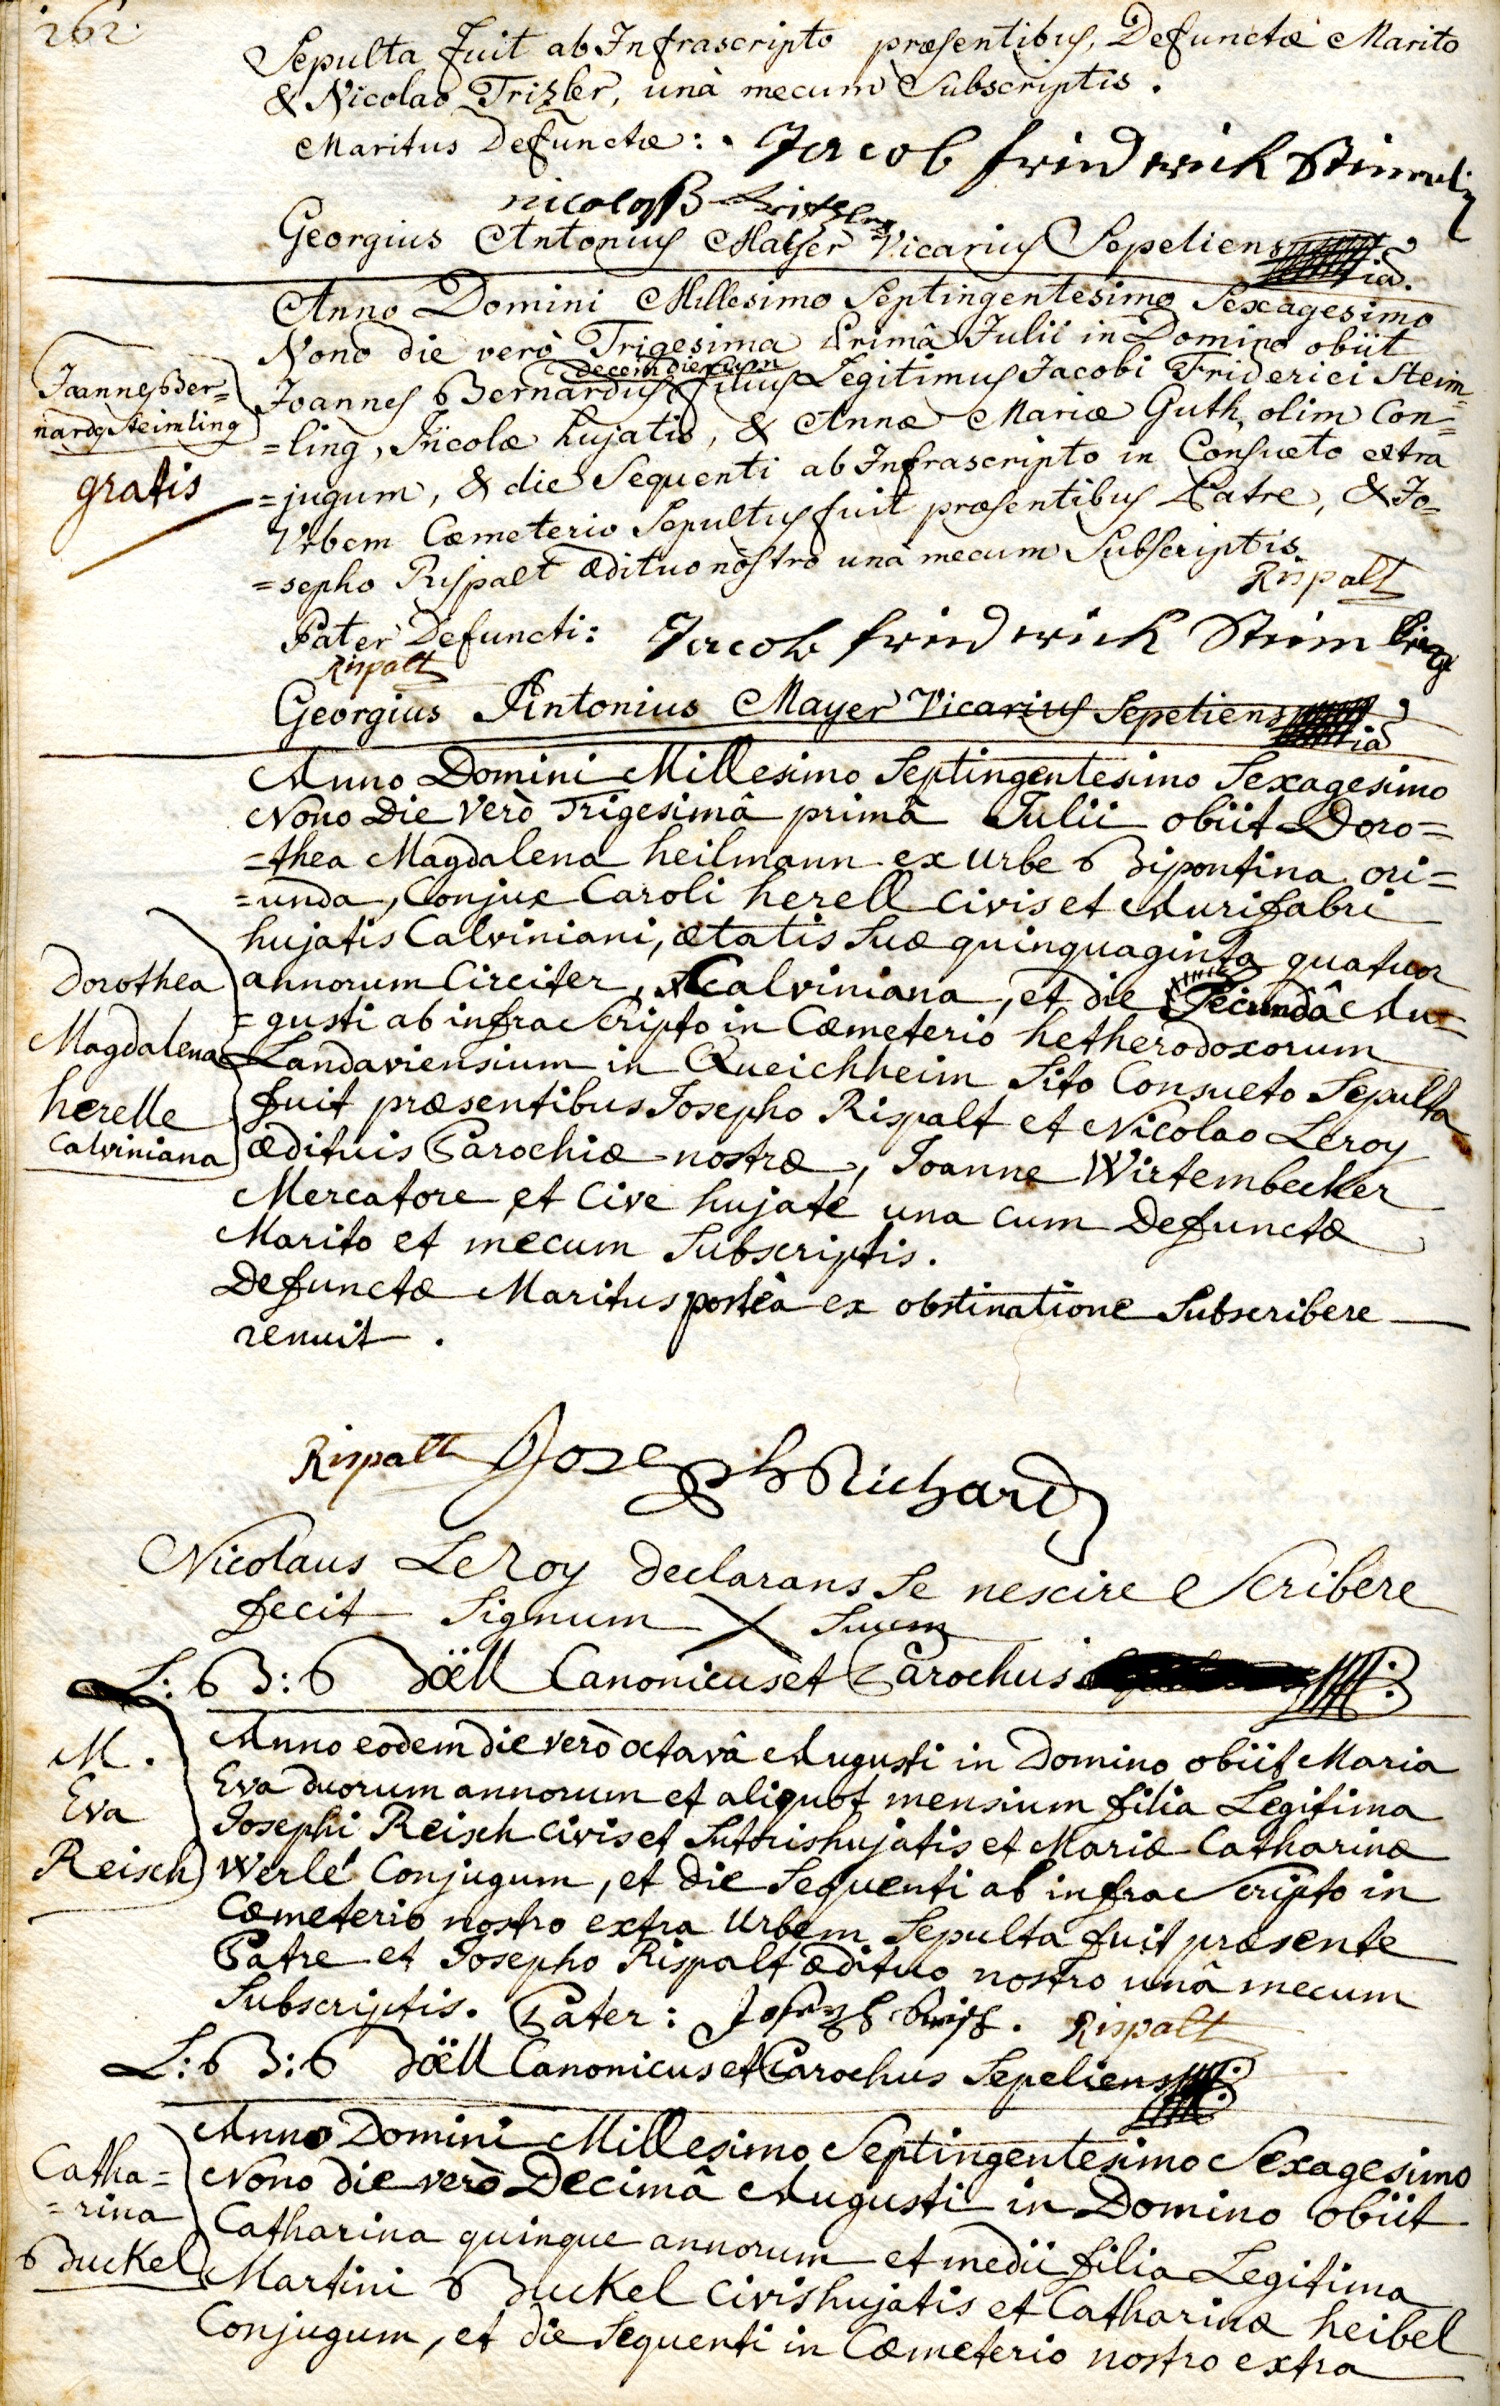 262.
Sepulta fuit ab Infrascripto præsentibus, Defunctæ Marito
& Nicolao Trizler, unà mecum Subscriptis.
Maritus Defunctæ: Jacob friedrich Steimling
nicolaß Tritzler
Georgius Antonius Mayer Vicarius Sepeliens
Anno Domini Millesimo Septingentesimo Sexagesimo
Nono die verò Trigesima Primâ Julii in Domino obiit
decem dierum
Joannes Bernardus filius Legitimus Jacobi Friderici Steim=
=ling, Incolæ hujatis, & Annæ Mariæ Guth, olim Con=
=jugum, & die Sequenti ab Infrascripto in Consueto extra
Urbem Cæmeterio Sepultus fuit præsentibus Patre, & Jo=
=sepho Rispalt ædituo nostro unà mecum Subscriptis.
Joannes Ber=
nardus Steimling
gratis
Rispalt
Pater Defuncti: Jacob friedrich Steimling
Rispalt
Georgius Antonius Mayer Vicarius Sepeliens
Anno Domini Millesimo Septingentesimo Sexagesimo
Nono Die Verò Trigesimâ primâ Julii obiit Doro=
=thea Magdalena heilmann ex urbe Bipontina ori=
=unda, Conjux Caroli herell Civis et Aurifabri
hujatis Calviniani, ætatis Suæ quinquaginta quatuor
annorum Circiter, Calviniana, et die Secundâ Au=
=gusti ab infra Scripto in Cæmeterio hetherodoxorum
Landaviensium in Queichheim Sito Consueto Sepulta
fuit præsentibus Josepho Rispalt et Nicolao Leroy
ædituis Parochiæ nostræ, Joanne Wirtembecker
Mercatore et Cive hujate una cum Defunctæ
Marito et mecum Subscriptis.
Defunctæ Maritus posteà ex obstinatione Subscribere
renuit.
Dorothea
Magdalena
herelle
Calviniana
Rispalt Joseph Richard
Nicolaus LeRoy declarans Se nescire Scribere
fecit Signum X Suum
L: B: Böll Canonicus et Parochus
Anno eodem die verò octavâ Augusti in Domino obiit Maria
Eva duorum annorum et aliquot mensium filia Legitima
Josephi Reisch civis et Sutoris hujatis et Mariæ Catharinæ
Werlé Conjugum, et die Sequenti ab infra Scripto in
Cæmeterio nostro extra Urbem Sepulta fuit præsente
Patre et Josepho Rispalt ædituo nostro unâ mecum
Subscriptis. Pater: Joseph Reisch. Rispalt
M.
Eva
Reisch
L: B: Böll Canonicus et Parochus Sepeliens
Anno Domini Millesimo Septingentesimo Sexagesimo
Nono die verò Decimâ Augusti in Domino obiit
Catharina quinque annorum et medii filia Legitima
Martini Buckel Civis hujatis et Catharinæ heibel
Conjugum, et die Sequenti in Cæmeterio nostro extra
Catha=
=rina
Buckel